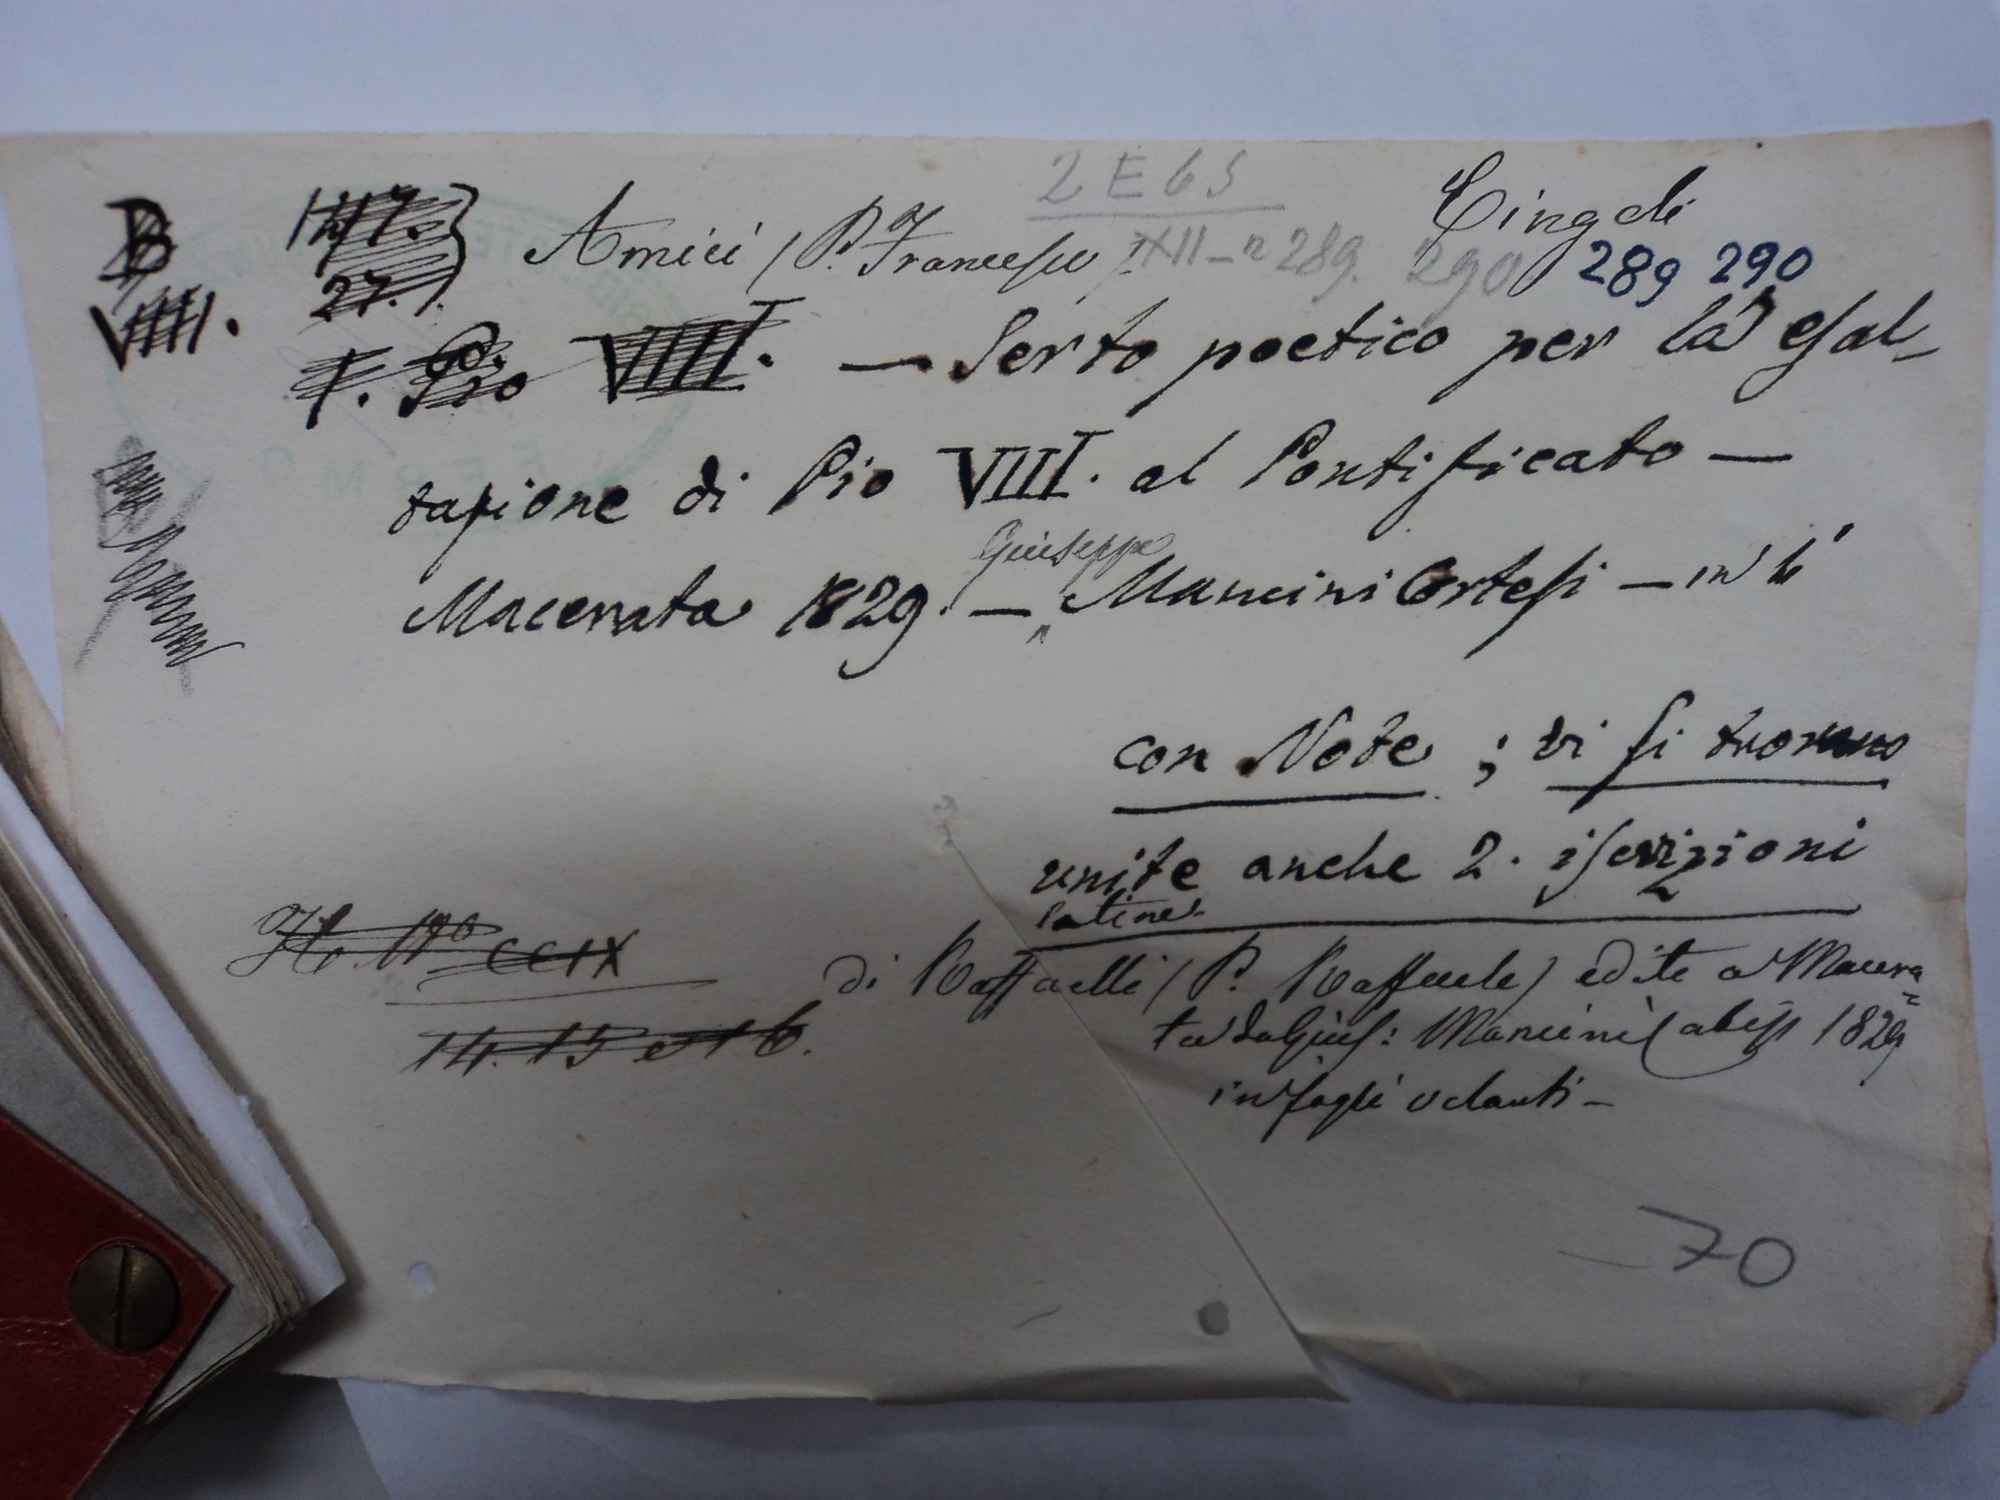 2 E 65
Cingoli
B 27. Amici (P. Francesco XII - n 289. 290 289 290
VIIII.
P. Pio VIIII. — Serto poetico per la esal-
tazione di Pio VIII. al Pontificato —
Giuseppe
Macerata 1829. — Mancini Cortesi — in 4°
con Note ; vi si trovano
unite anche 2. iscrizioni
latine
di Raffaelli (P. Raffaele) edite a Macera=
ta da Gius: Mancini 1829
in fogli volanti —
H. N° CCIX
14. 15 et 16.
70